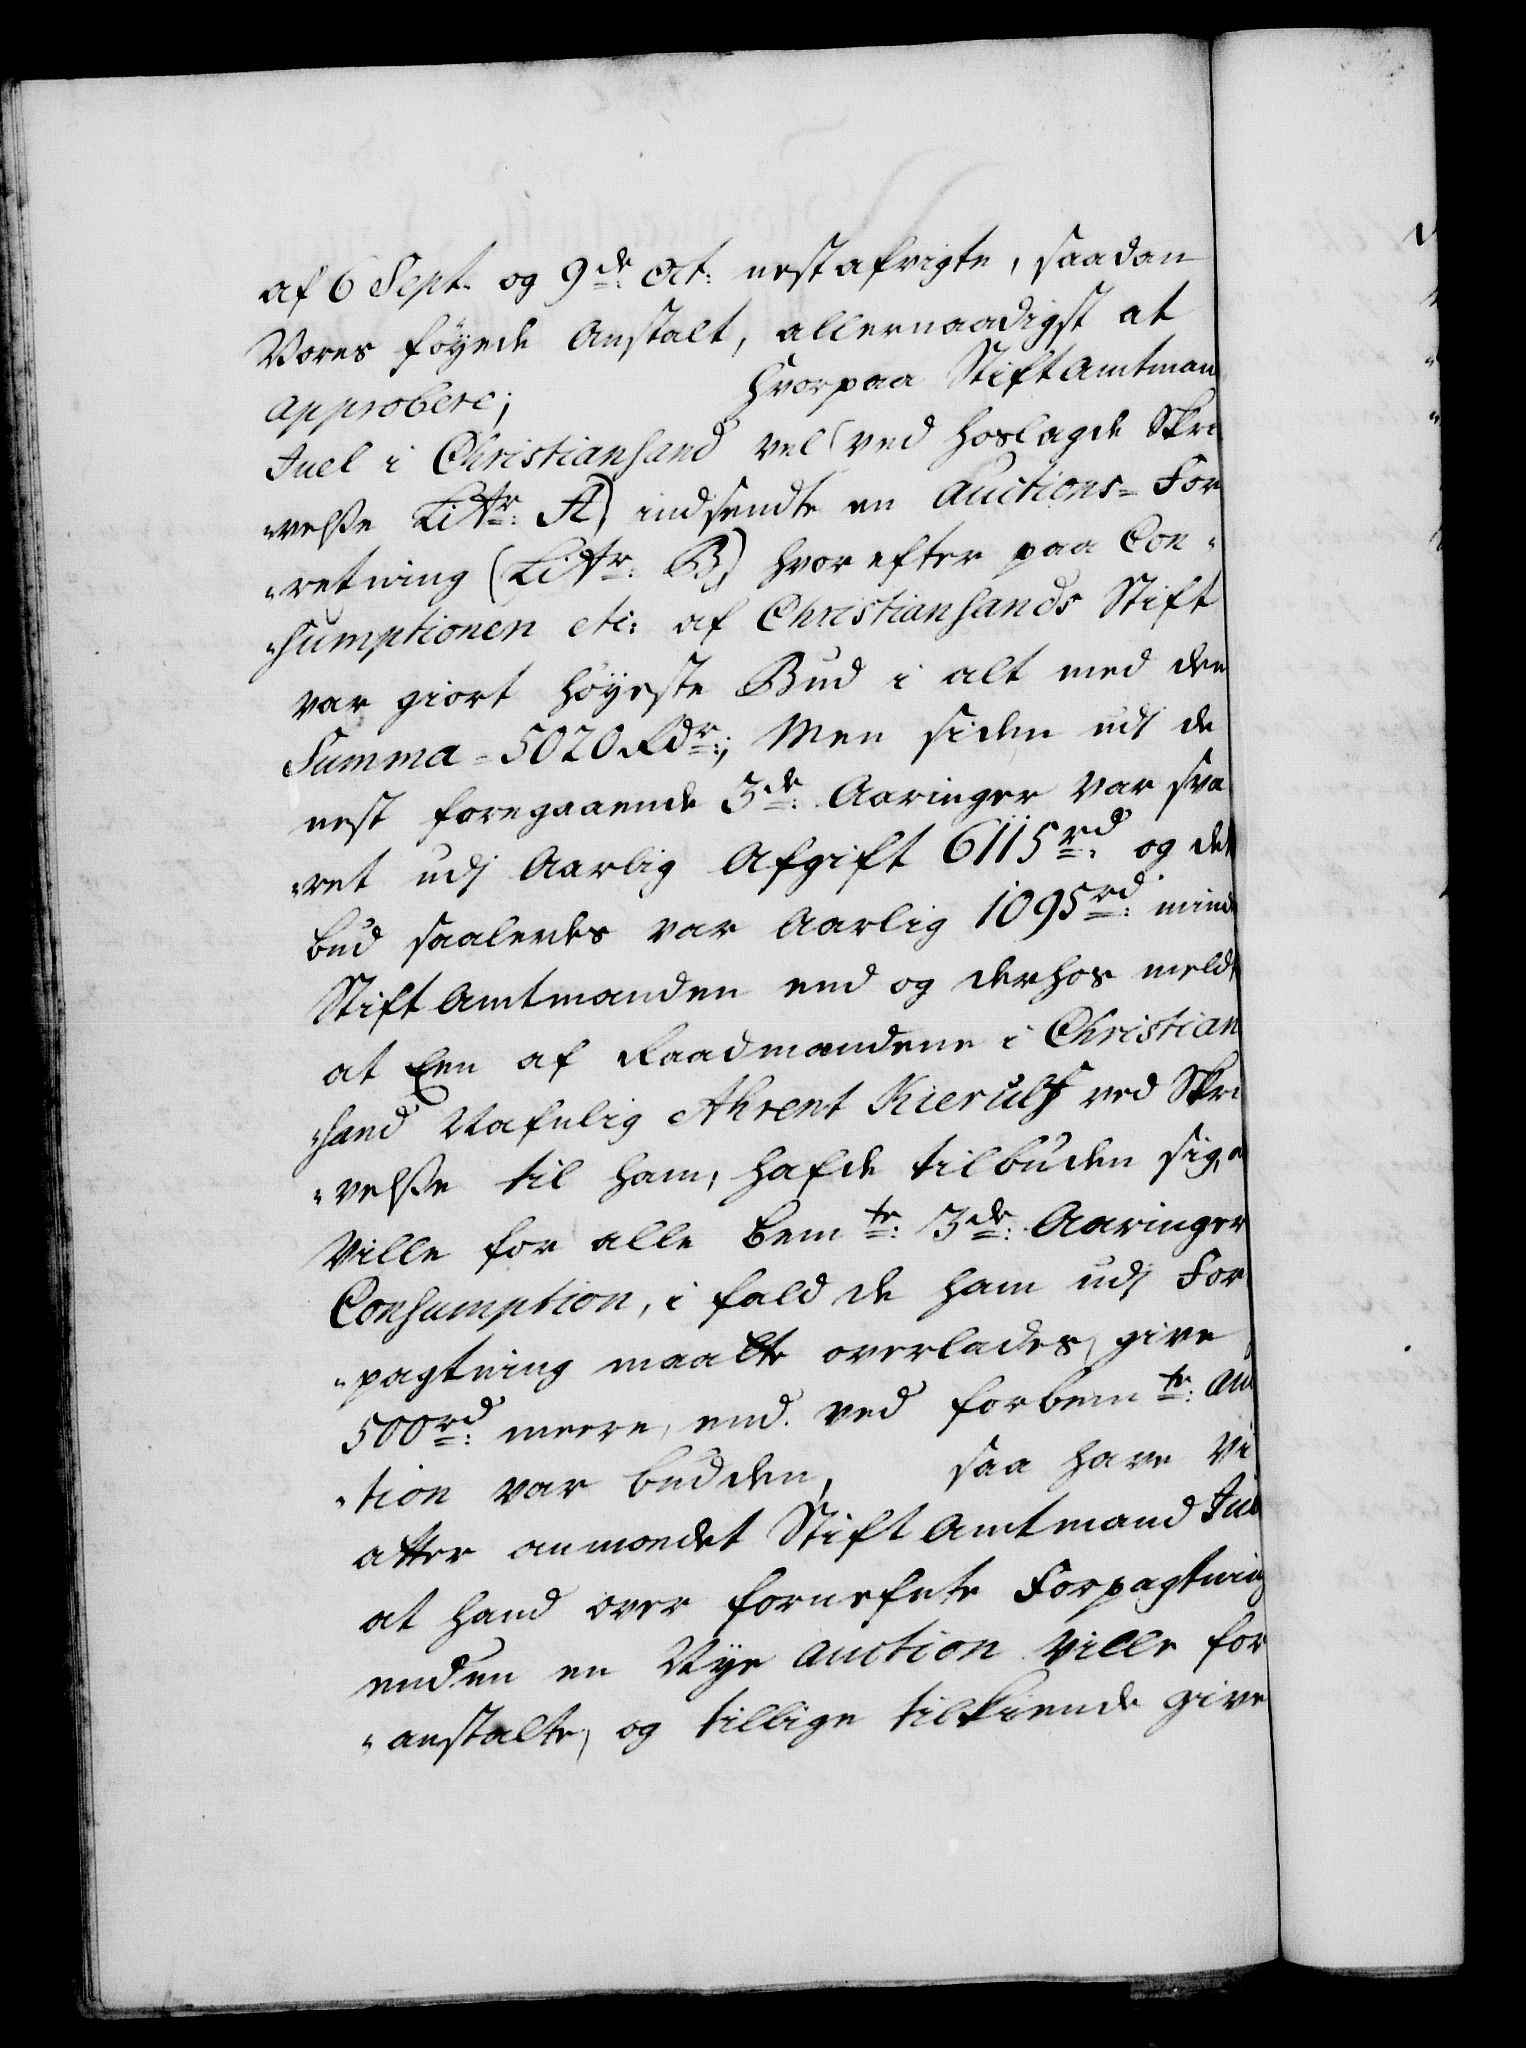 af 6 Sept. og 9de: Oct: nestafvigte, saadan
Vores føyede Anstalt, allernaadigst at
approbere; Hvorpaa Stiftamtman
Juel i Christiansand vel (ved hoslagde Skri
"velße Littr: A) indsendte en Auctions= For
"retning (Littr: B) hvorefter paa Con=
"sumptionen etc: af Christiansands Stift
var giort høyeste Bud i alt med den
Summa = 5020 Rdr:; Men siden udj de
nest foregaaende 3de: Aaringer var sva
"ret udj Aarlig Afgift 6115rd: og det
bud saaledes var Aarlig 1095rd: mind
Stiftamtmanden end og derhos meldt
at Een af Raadmændene i Christian
"sand Nafnlig Ahrent Kierulf ved Skri
"velße til ham, hafde tilbuden sig, a
Ville for alle bemte: 3de: Aaringer
Consumption, i fald de ham udj For
"pagtning maatte overlades, give
500rd: meere, end ved forbemte: Auc
"tion var budden, saa have Vi
atter anmodet Stiftamtmand Jue
at hand over fornefnte Forpagtning
endnu en Nye Auction ville for
"anstalte, og tillige tilkiende give